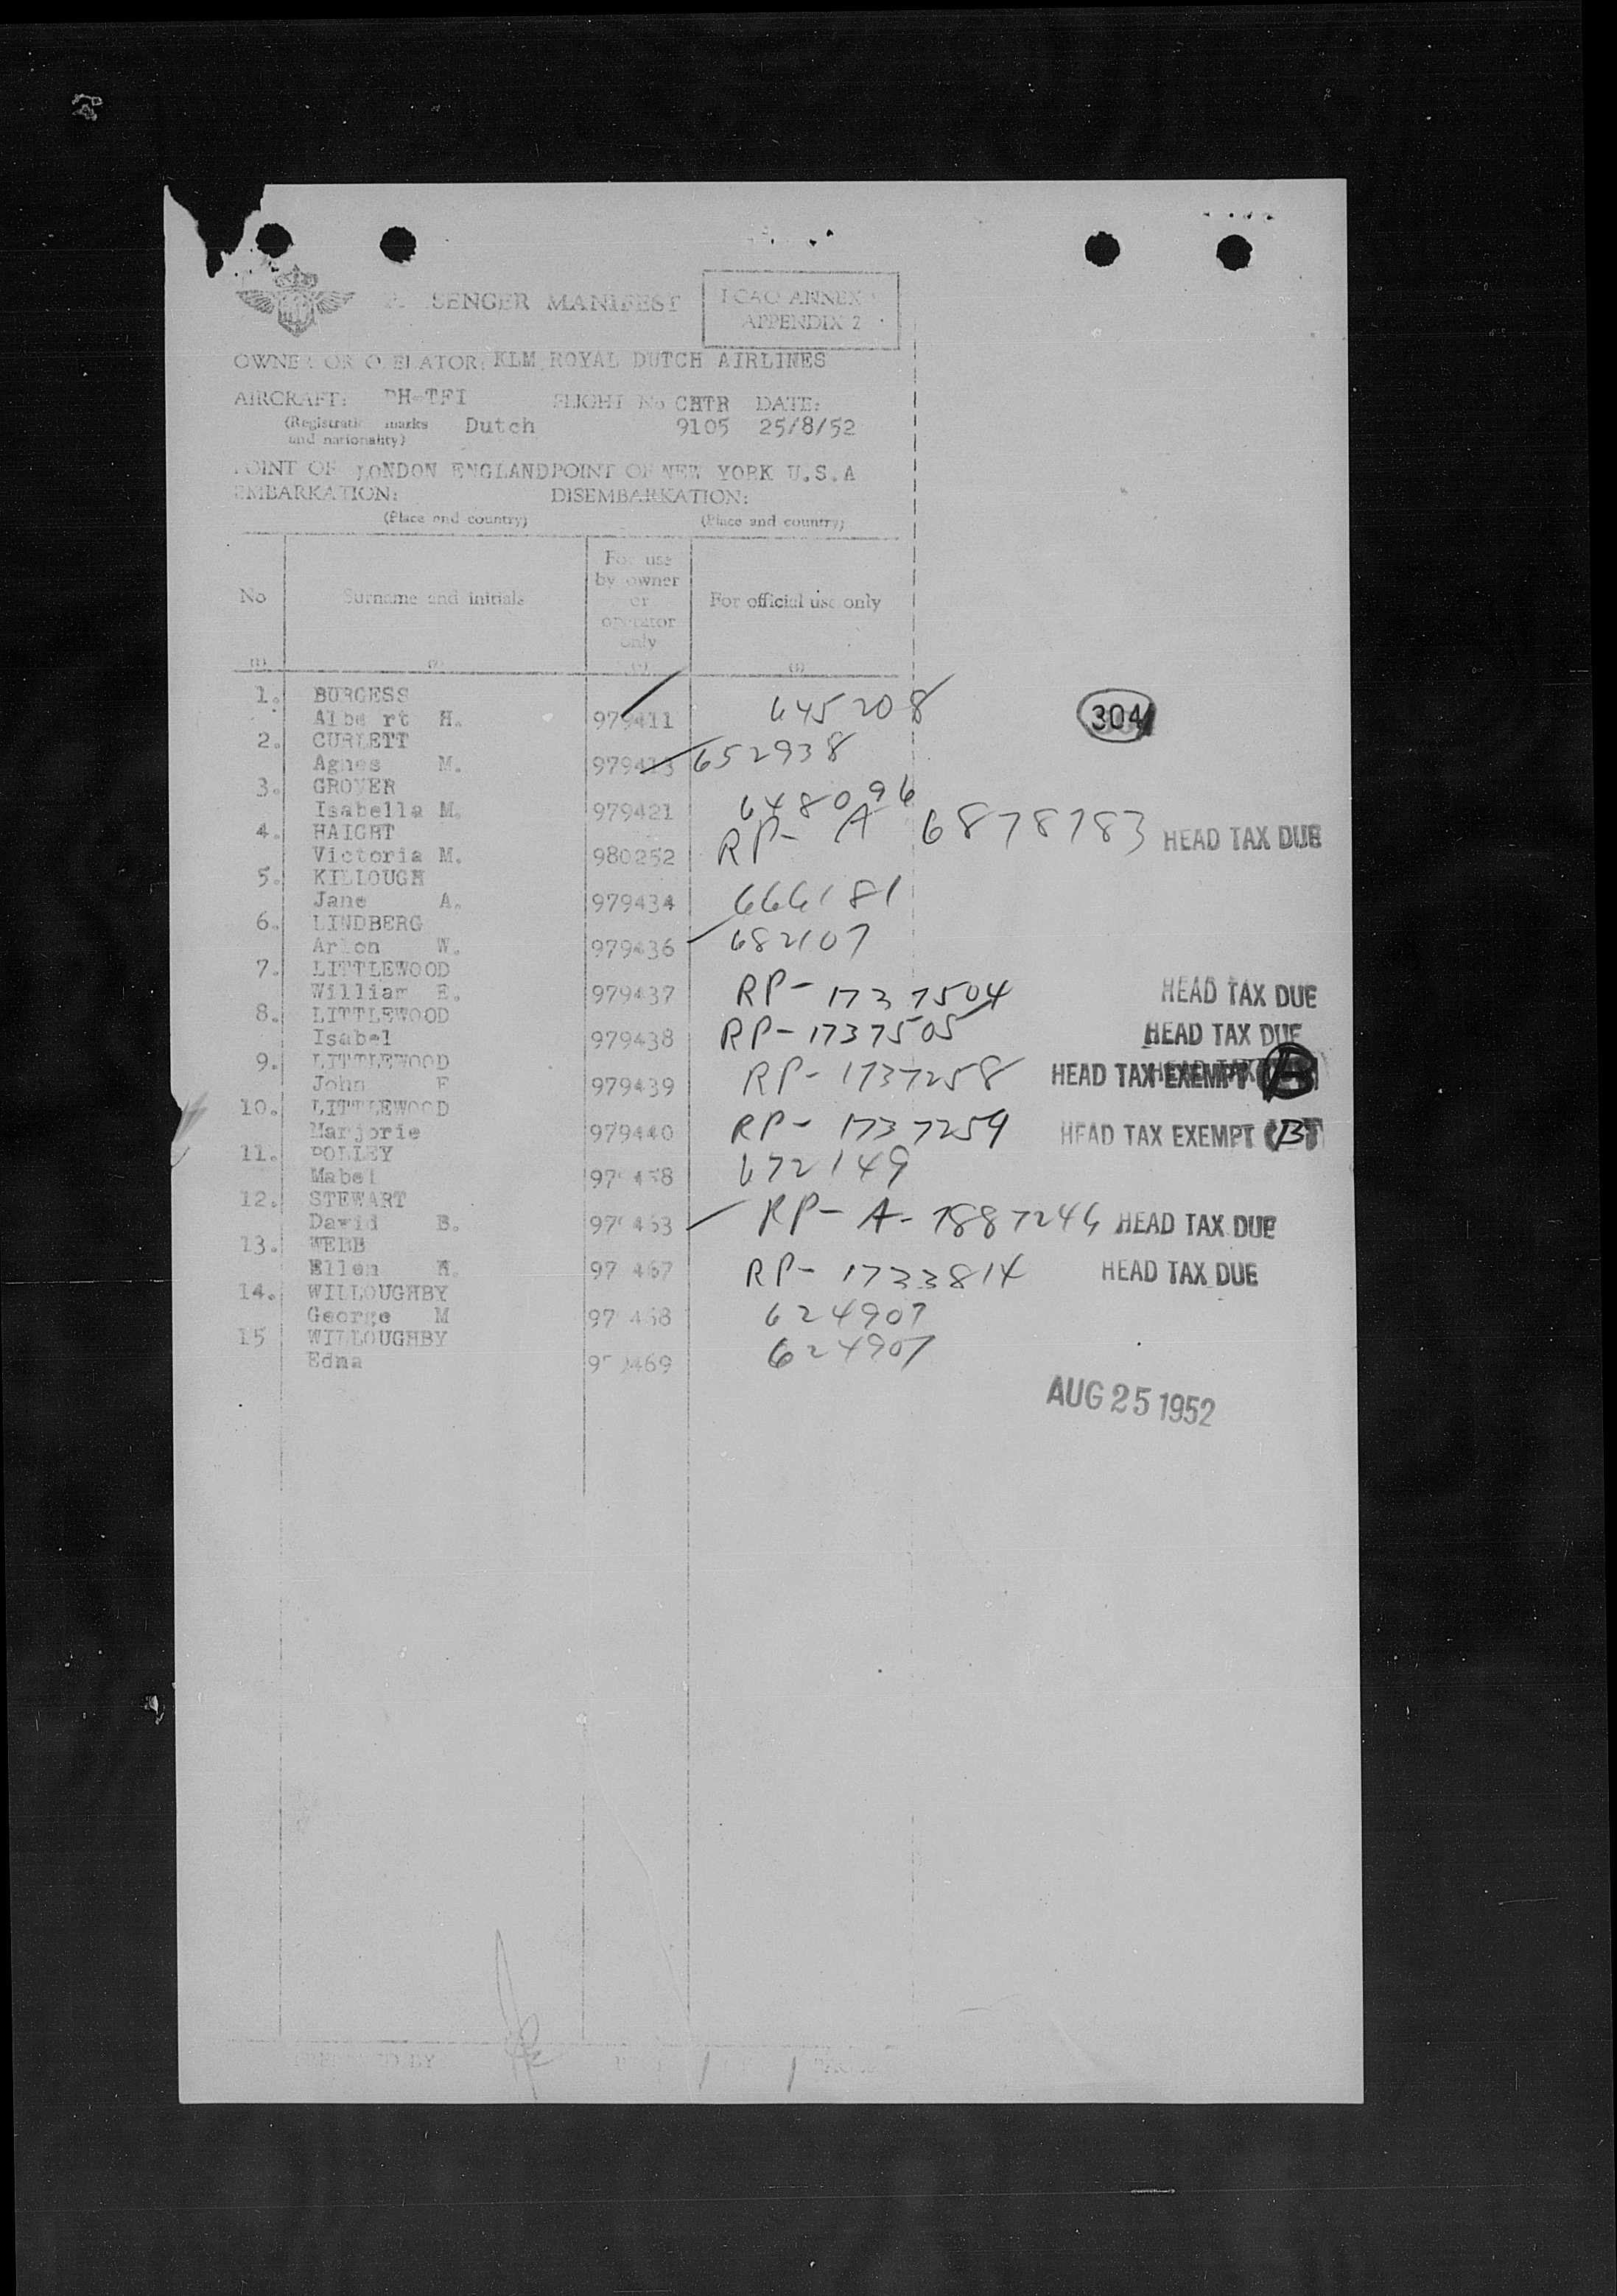 SENGER MANIFEST
ICAO ANNEX
APPENDIX 2
KLM ROYAL DUTCH AIRLINES
AIRCRAFT: PH-TFI FLIGHT No CHTR DATE:
marks Dutch 9105 25/8/52
and nationality)
POINT OF LONDON ENGLAND POINT OF NEW YORK U.S.A
EMBARKATION: DISEMBARKATION:
(Place and country) (Place and country)
For use
by owner
or
operator
only
No Surname and initials For official use only
1. BURGESS
Albert H. 979411 645208 304
2. CURLETT
Agnes M. 979413 652938
3. GROVER
Isabella M. 979421 648096
4. HAIGHT
Victoria M. 980252 RP- A 6878783 HEAD TAX DUE
5. KILLOUGH
Jane A. 979434 666181
6. LINDBERG
Arlon W. 979436 682107
7. LITTLEWOOD
William E. 979437 RP- 1737504 HEAD TAX DUE
8. LITTLEWOOD
Isabel 979438 RP-1737505 HEAD TAX DUE
9. LITTLEWOOD
John F 979439 RP- 1737258 HEAD TAX EXEMPT
10. LITTLEWOOD
Marjorie 979440 RP- 1737259 HEAD TAX EXEMPT (B)
11. POLLEY
Mabel 672149
12. STEWART
David B. RP- A- 7887246 HEAD TAX DUE
13. WEBB
Ellen RP- 1733814 HEAD TAX DUE
14. WILLOUGHBY
George M 624907
15 WILLOUGHBY
Edna 624907
AUG 25 1952